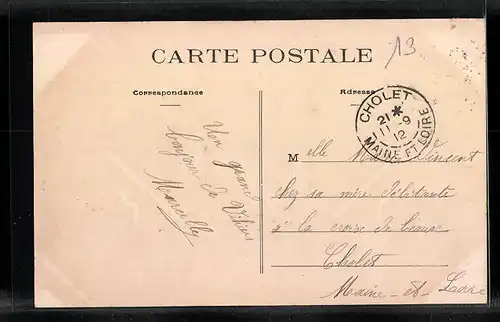 CARTE POSTALE
13
Correspondance
Adresse
CHOLET
21 * -9
11 12
MAINE ET LOIRE
Un grand
bonjour de Vihiers
Marcelle
Melle Vincent
chez sa mère débitante
à la croix de
Cholet
Maine-et-Loire